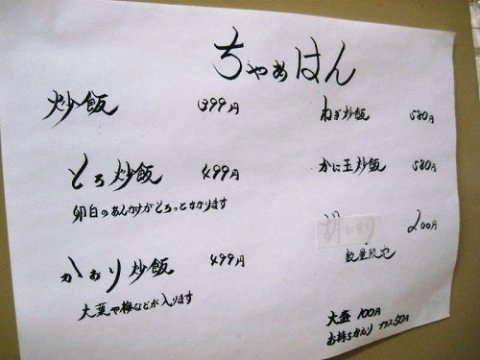 ちゃあはん
炒飯 399円
とろ炒飯 499円
卵白のあんかけがとろっとかかります
かおり炒飯 499円
大葉や梅などが入ります
ねぎ炒飯 580円
かに玉炒飯 580円
200円
数量限定
大盛 100円
お持ちかえり プラス50円